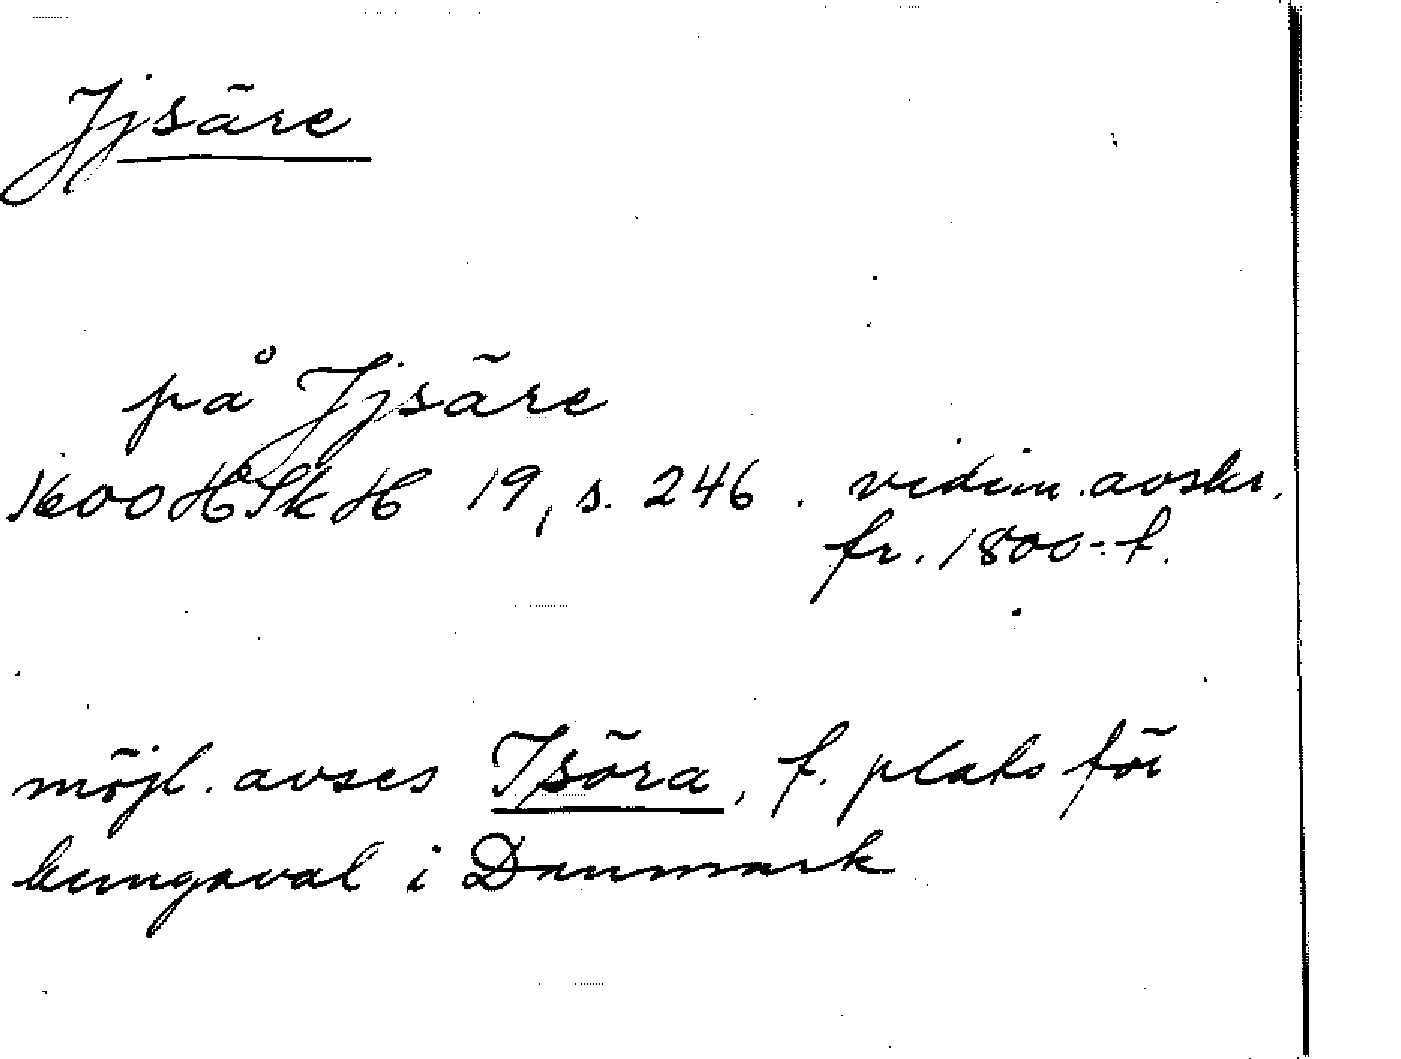 Jjsäre
på Jjsäre
1600 HSkH 19, s. 246. vidim. avskr.
fr. 1800-t.
möjl. avses Isöra, f. plats för
kungaval i Danmark